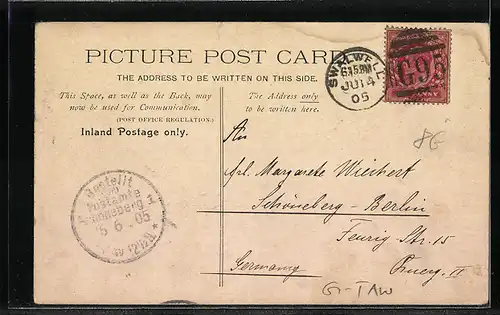 PICTURE POST CARD
THE ADDRESS TO BE WRITTEN ON THIS SIDE.
This Space, as well as the Back, may
now be used for Communication.
(POST OFFICE REGULATION.)
Inland Postage only.
The Address only
to be written here.
SWALWELL
JU 14
05
G95
8G
An
Frl. Margarete Wiechert
Schöneberg - Berlin
Feurig Str. 15
Germany
G-TAW
Bestellt
vom
Postamte
Schöneberg 1
6. 05